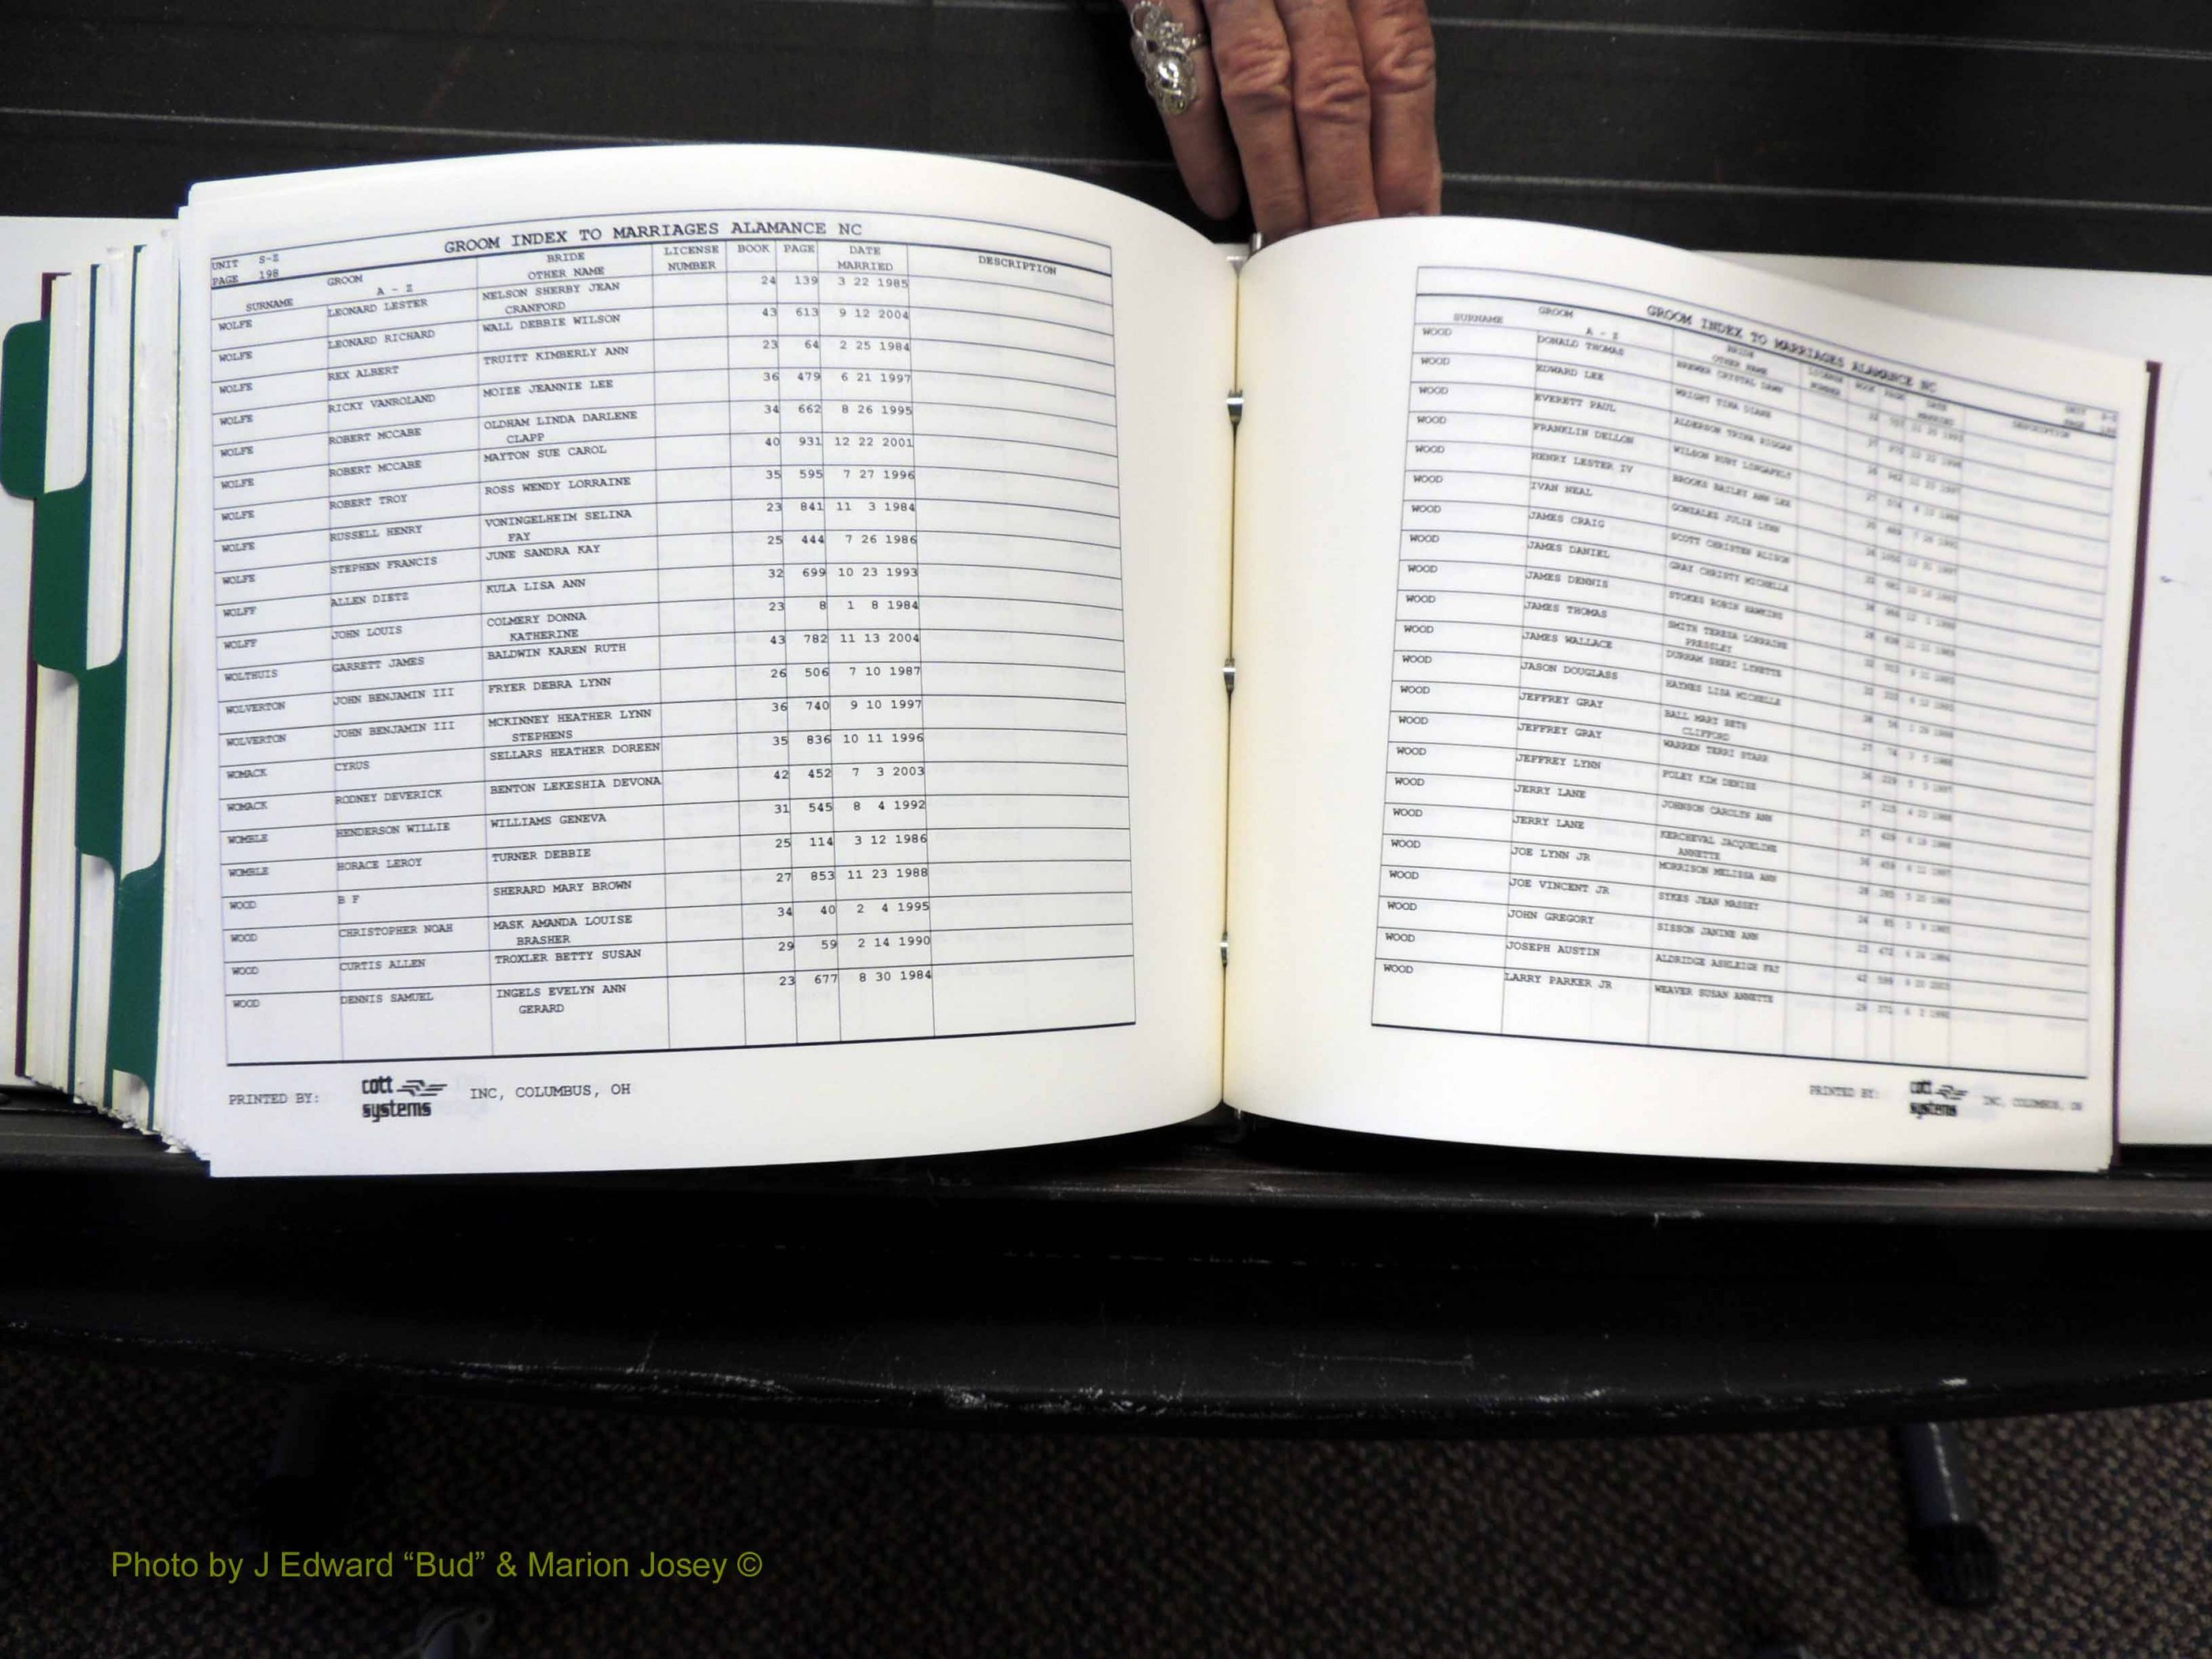 GROOM INDEX TO MARRIAGES ALAMANCE NC
UNIT S-Z
PAGE 198
SURNAME GROOM A - Z BRIDE OTHER NAME LICENSE NUMBER BOOK PAGE DATE MARRIED DESCRIPTION
WOLFE LEONARD LESTER NELSON SHERBY JEAN 24 139 3 22 1985
CRANFORD
WOLFE LEONARD RICHARD WALL DEBBIE WILSON 43 613 9 12 2004
WOLFE REX ALBERT TRUITT KIMBERLY ANN 23 64 2 25 1984
WOLFE RICKY VANROLAND MOIZE JEANNIE LEE 36 479 6 21 1997
WOLFE ROBERT MCCABE OLDHAM LINDA DARLENE 34 662 8 26 1995
CLAPP
WOLFE ROBERT MCCABE MAYTON SUE CAROL 40 931 12 22 2001
WOLFE ROBERT TROY ROSS WENDY LORRAINE 35 595 7 27 1996
WOLFE RUSSELL HENRY VONINGELHEIM SELINA 23 841 11 3 1984
FAY
WOLFE STEPHEN FRANCIS JUNE SANDRA KAY 25 444 7 26 1986
WOLFF ALLEN DIETZ KULA LISA ANN 32 699 10 23 1993
WOLFF JOHN LOUIS COLMERY DONNA 23 8 1 8 1984
KATHERINE
WOLTHUIS GARRETT JAMES BALDWIN KAREN RUTH 43 782 11 13 2004
WOLVERTON JOHN BENJAMIN III FRYER DEBRA LYNN 26 506 7 10 1987
WOLVERTON JOHN BENJAMIN III MCKINNEY HEATHER LYNN 36 740 9 10 1997
STEPHENS
WOMACK CYRUS SELLARS HEATHER DOREEN 35 836 10 11 1996
WOMACK RODNEY DEVERICK BENTON LEKESHIA DEVONA 42 452 7 3 2003
WOMBLE HENDERSON WILLIE WILLIAMS GENEVA 31 545 8 4 1992
WOMBLE HORACE LEROY TURNER DEBBIE 25 114 3 12 1986
WOOD B F SHERARD MARY BROWN 27 853 11 23 1988
WOOD CHRISTOPHER NOAH MASK AMANDA LOUISE 34 40 2 4 1995
BRASHER
WOOD CURTIS ALLEN TROXLER BETTY SUSAN 29 59 2 14 1990
WOOD DENNIS SAMUEL INGELS EVELYN ANN 23 677 8 30 1984
GERARD
PRINTED BY: cott systems INC, COLUMBUS, OH
GROOM INDEX TO MARRIAGES ALAMANCE NC
SURNAME GROOM A - Z BRIDE OTHER NAME LICENSE NUMBER BOOK PAGE DATE MARRIED DESCRIPTION
WOOD DONALD THOMAS BREWER CRYSTAL DAWN
WOOD EDWARD LEE WRIGHT TINA DIANE
WOOD EVERETT PAUL ALDERSON TRINA
WOOD FRANKLIN DELLON WILSON RUBY
WOOD HENRY LESTER IV BROOKS BAILEY ANN LEA
WOOD IVAN NEAL GONZALEZ JULIE LYNN
WOOD JAMES CRAIG SCOTT CHRISTEN ALISON
WOOD JAMES DANIEL GRAY CHRISTY MICHELLE
WOOD JAMES DENNIS STOKES ROBIN HAWKINS
WOOD JAMES THOMAS SMITH TERESA LORRAINE
PRESSLEY
WOOD JAMES WALLACE DURHAM SHERI LYNETTE
WOOD JASON DOUGLASS HAYNES LISA MICHELLE
WOOD JEFFREY GRAY BALL MARY BETH
CLIFFORD
WOOD JEFFREY GRAY WARREN TERRI STARR
WOOD JEFFREY LYNN FOLEY KIM DENISE
WOOD JERRY LANE JOHNSON CAROLYN ANN
WOOD JERRY LANE KERCHEVAL JACQUELINE
ANNETTE
WOOD JOE LYNN JR MORRISON MELISSA ANN
WOOD JOE VINCENT JR SYKES JEAN MASSEY
WOOD JOHN GREGORY SISSON JANINE ANN
WOOD JOSEPH AUSTIN ALDRIDGE ASHLEIGH FAY
WOOD LARRY PARKER JR WEAVER SUSAN ANNETTE
PRINTED BY: cott systems INC, COLUMBUS, OH
Photo by J Edward “Bud” & Marion Josey ©